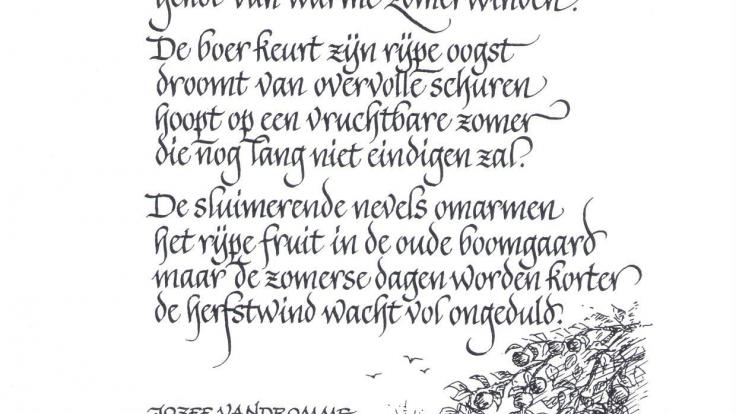 genoe van warme zomerwinden.
De boer keurt zijn rijpe oogst
droomt van overvolle schuren
hoopt op een vruchtbare zomer
die nog lang niet eindigen zal.
De sluimerende nevels omarmen
het rijpe fruit in de oude boomgaard
maar de zomerse dagen worden korter
de herfstwind wacht vol ongeduld.
JOZEF VANDROMME